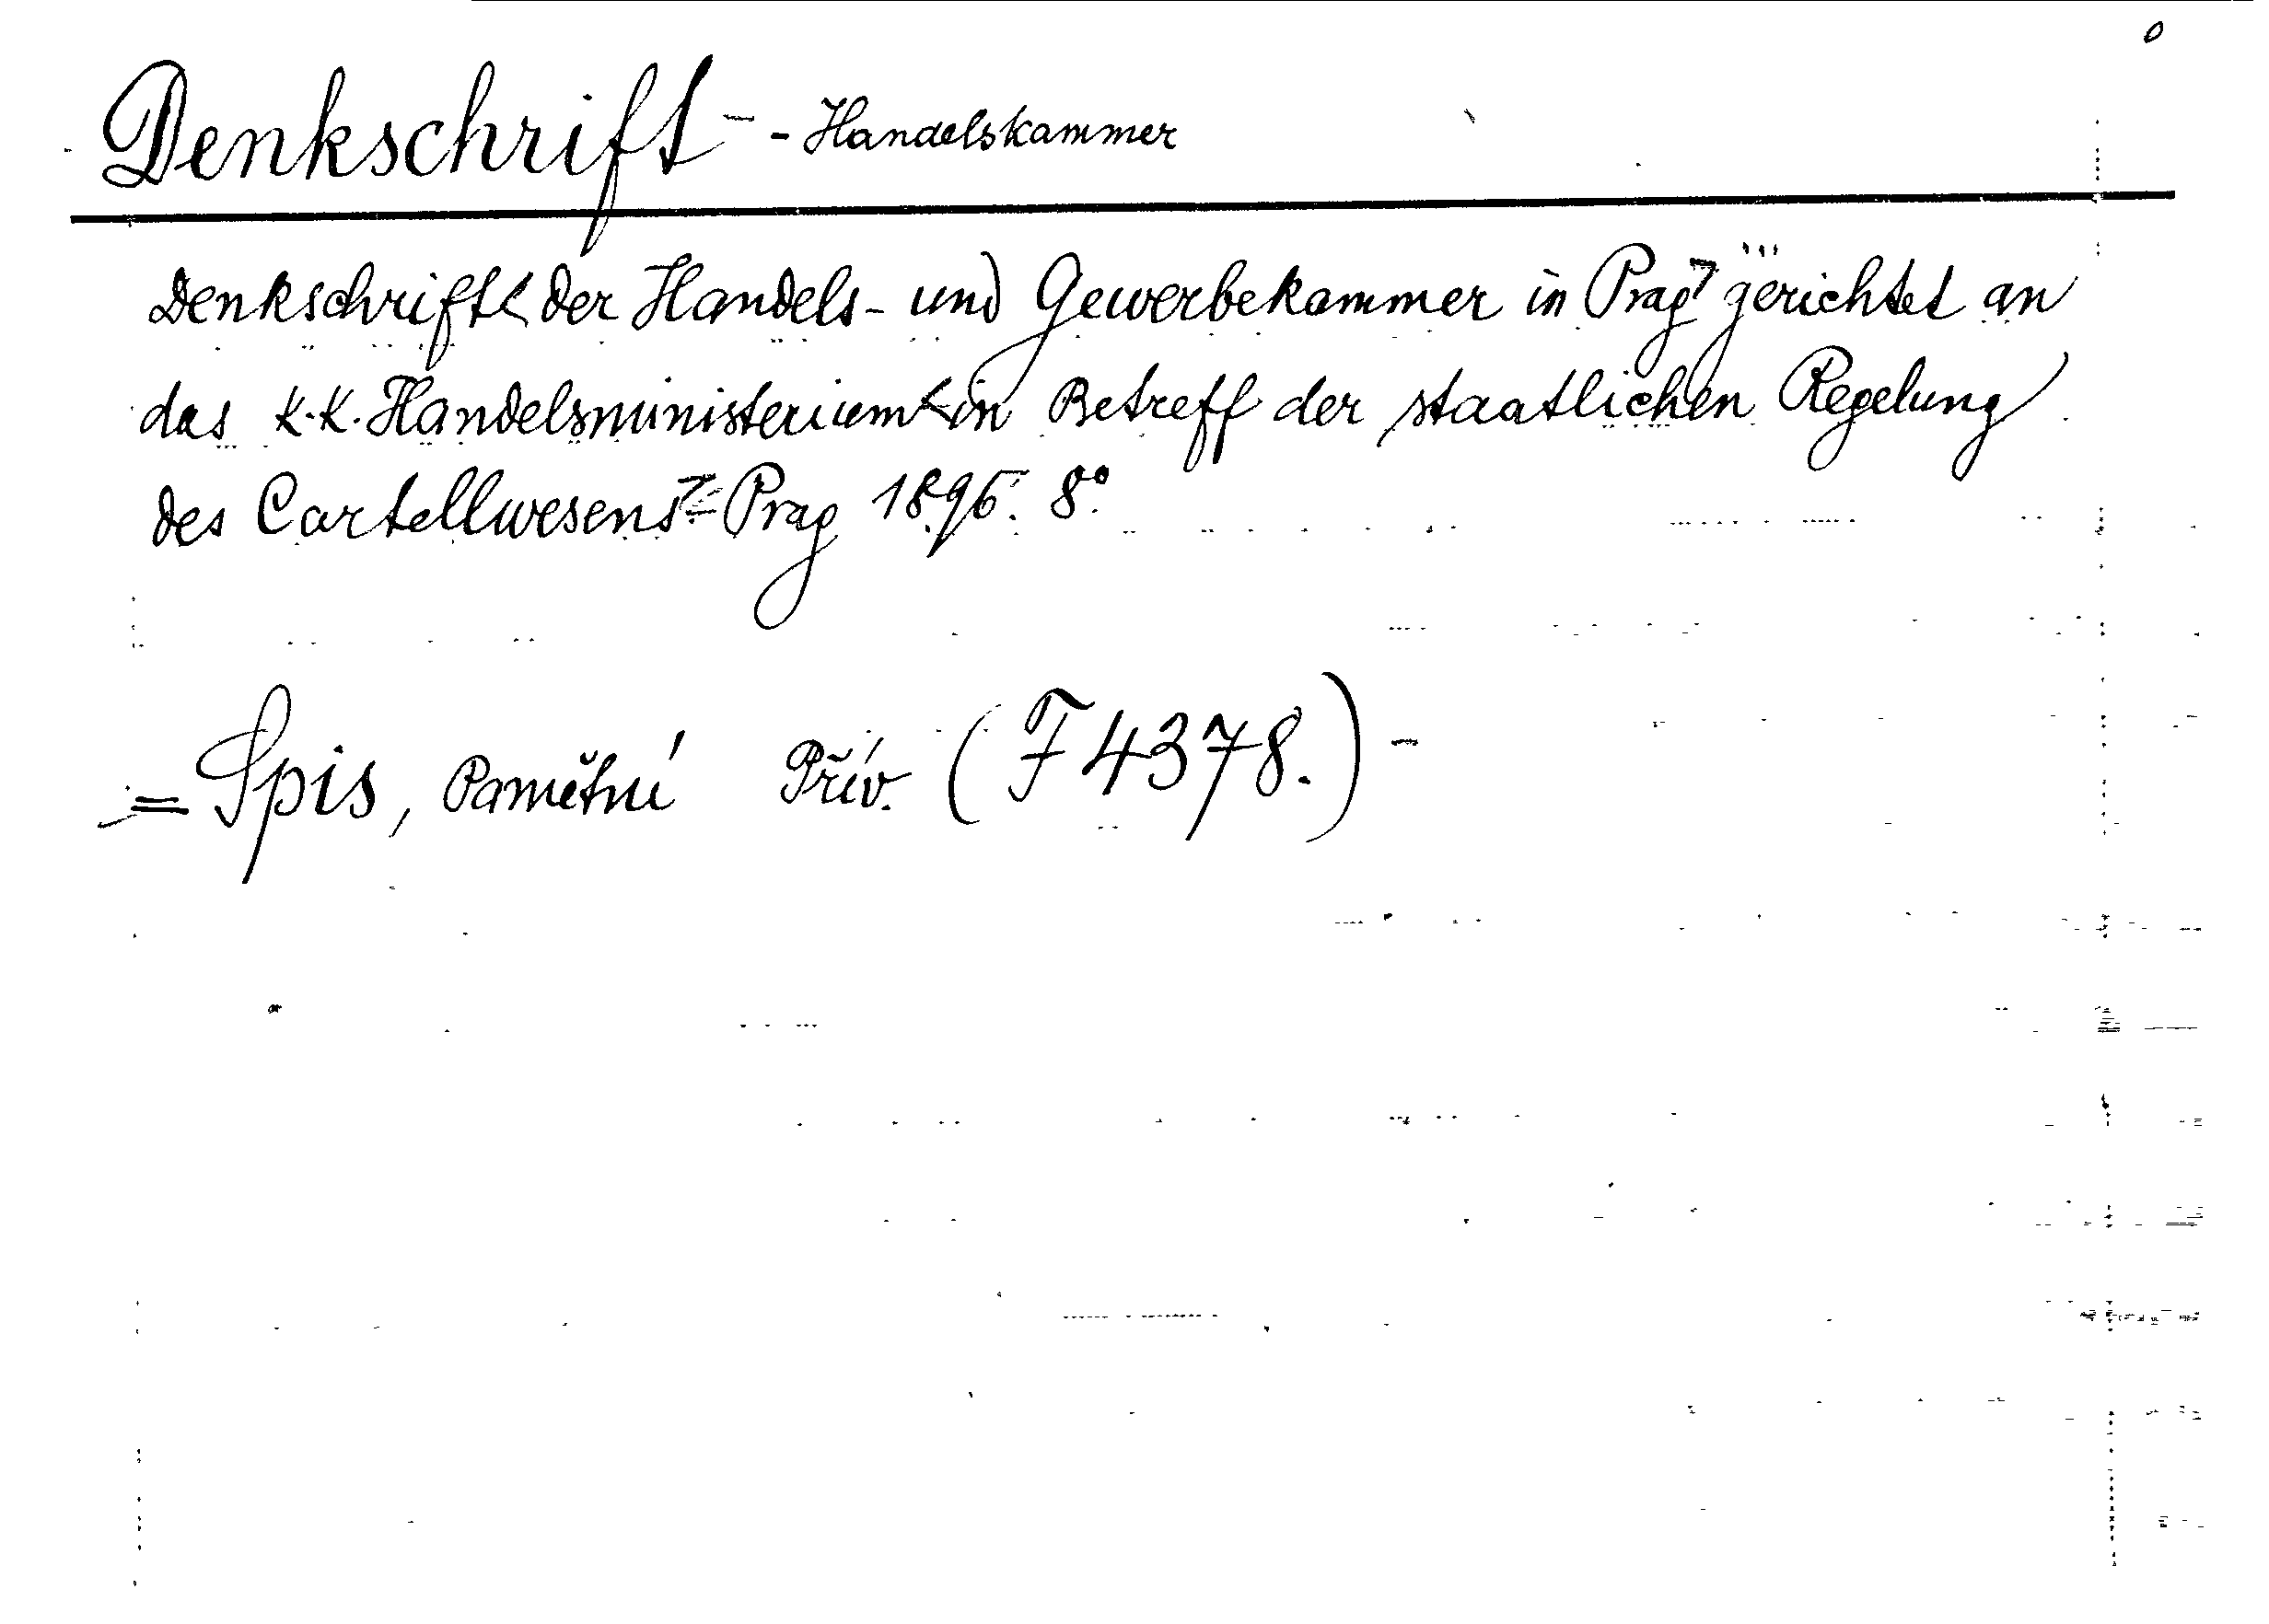 Denkschrift - - Handelskammer
Denkschrift < der Handels- und Gewerbekammer in Prag > gerichtet an
das k.k. Handelsministerium < in Betreff der staatlichen Regelung
des Cartellwesens > = Prag 1896. 8°.
= Spis, Pamětní Přív. (F 4378.) -